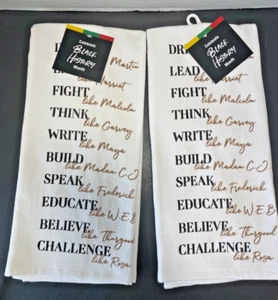 Celebrate
BLACK
HISTORY
Month
D
like Martin
Harriet
FIGHT
like Malcolm
THINK
like Garvey
WRITE
like Maya
BUILD
like Madam C-J
SPEAK
like Frederick
EDUCATE
like W.E.B
BELIEVE
like Thurgood
CHALLENGE
like Rosa
Celebrate
BLACK
HISTORY
Month
DR
LEAD
like Harriet
FIGHT
like Malcolm
THINK
like Garvey
WRITE
like Maya
BUILD
like Madam C-J
SPEAK
like Frederick
EDUCATE
like W.E.B
BELIEVE
like Thurgood
CHALLENGE
like Rosa